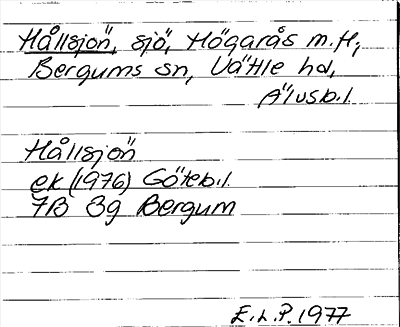 Hållsjön, sjö, Högarås m.fl,
Bergums sn, Vättle hd,
Älvsb.l.
Hållsjön
ek (1976) Göteb.l.
7B 8g Bergum
E.L.P. 1977